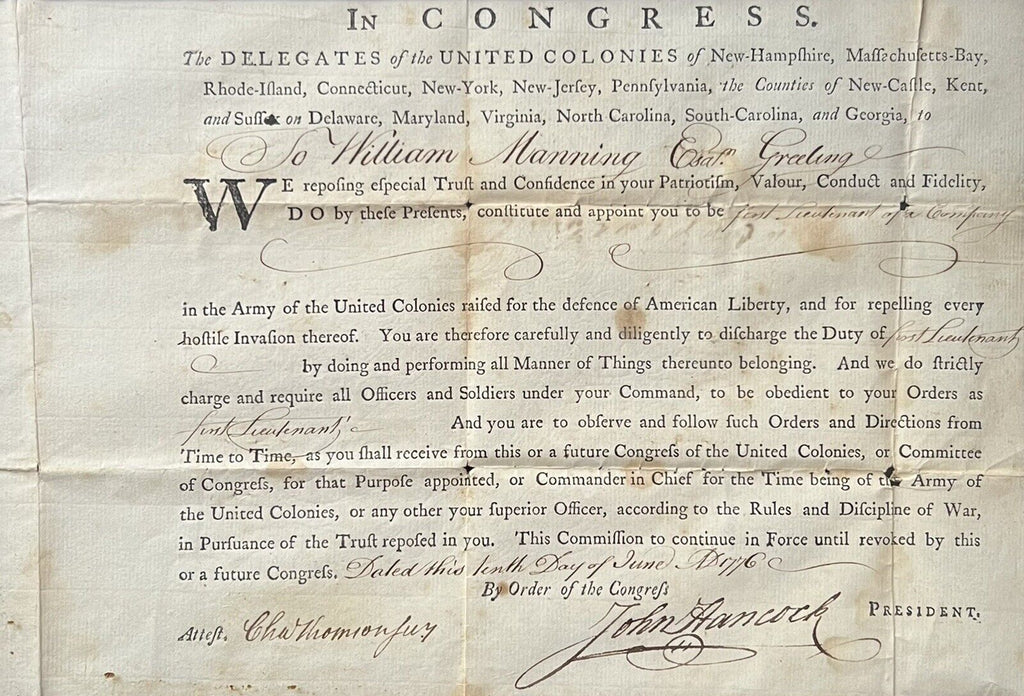 IN CONGRESS.
The DELEGATES of the UNITED COLONIES of New-Hampſhire, Maſſachuſetts-Bay,
Rhode-Iſland, Connecticut, New-York, New-Jerſey, Pennſylvania, the Counties of New-Caſtle, Kent,
and Suſſex on Delaware, Maryland, Virginia, North Carolina, South-Carolina, and Georgia, to
To William Manning Greeting
WE repoſing eſpecial Truſt and Confidence in your Patriotiſm, Valour, Conduct and Fidelity,
DO by theſe Preſents, conſtitute and appoint you to be firſt Lieutenant of a Company
in the Army of the United Colonies raiſed for the defence of American Liberty, and for repelling every
hoſtile Invaſion thereof. You are therefore carefully and diligently to diſcharge the Duty of firſt Lieutenant
by doing and performing all Manner of Things thereunto belonging. And we do ſtrictly
charge and require all Officers and Soldiers under your Command, to be obedient to your Orders as
firſt Lieutenant And you are to obſerve and follow ſuch Orders and Directions from
Time to Time, as you ſhall receive from this or a future Congreſs of the United Colonies, or Committee
of Congreſs, for that Purpoſe appointed, or Commander in Chief for the Time being of the Army of
the United Colonies, or any other your ſuperior Officer, according to the Rules and Diſcipline of War,
in Purſuance of the Truſt repoſed in you. This Commiſſion to continue in Force until revoked by this
or a future Congreſs. Dated this tenth Day of June AD 1776
By Order of the Congreſs
John Hancock PRESIDENT.
Atteſt. Cha Thomson ſecy